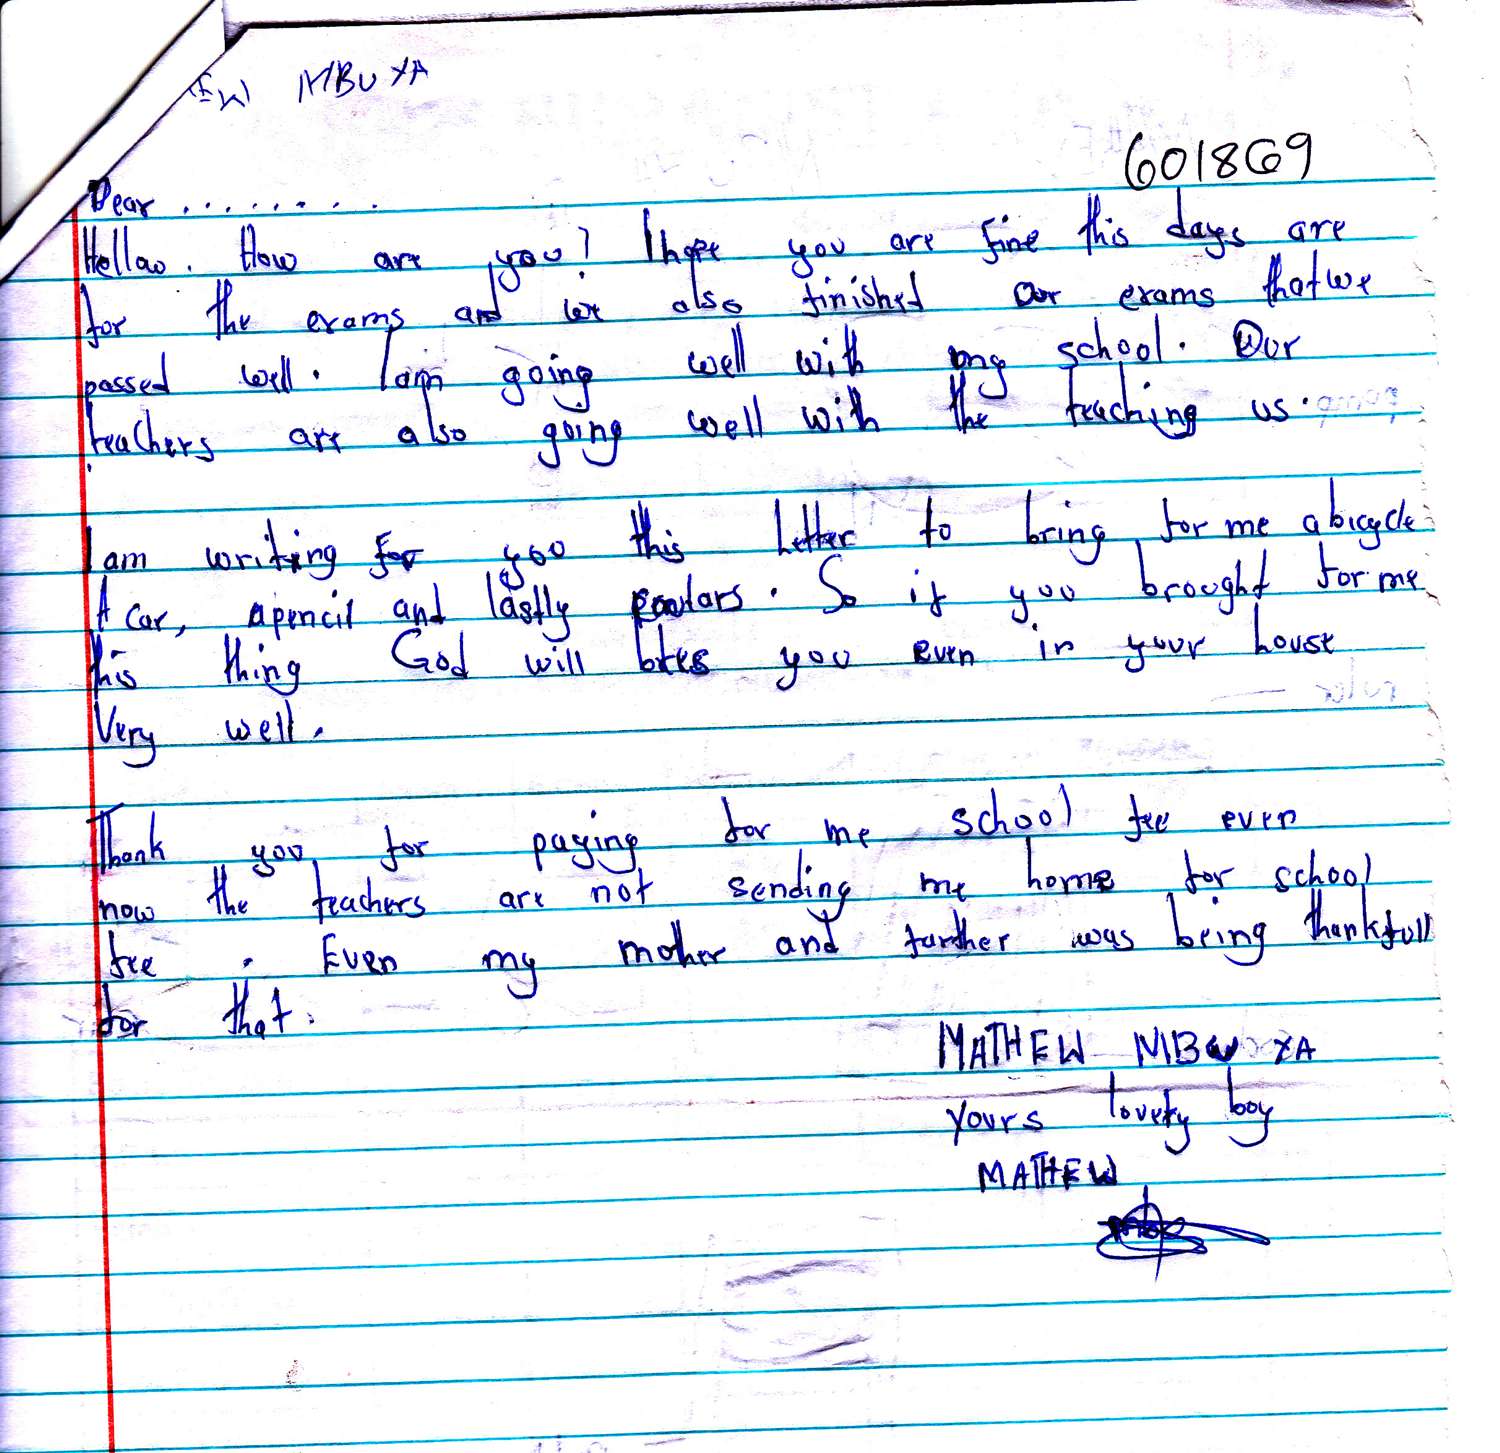 EW MBUYA
601869
Dear ........
Hellow. How are you? I hope you are fine this days are
for the exams and we also finished our exams that we
passed well. I am going well with my school. Our
teachers are also going well with the teaching us.
I am writing for you this letter to bring for me a bicycle
A car, a pencil and lastly . So if you brought for me
this thing God will bless you even in your house
Very well.
Thank you for paying for me school fee even
now the teachers are not sending me home for school
fee . Even my mother and farther was being thankfull
for that.
MATHEW MBUYA
yours lovely boy
MATHEW